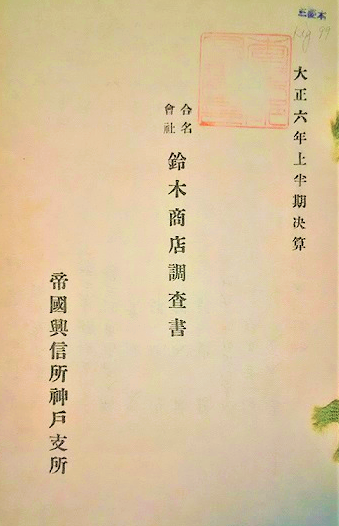 大正六年上半期決算
合名會社 鈴木商店調査書
帝國興信所神戸支所